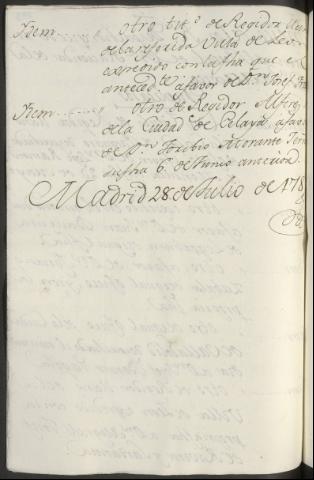 Item otro titº de Regidor
de la referida Villa de Leon
expedido con la fha que el
anteced.te a favor de Dn. Josef
Item otro de Regidor
de la Ciudad de Celaya, a favor
de Dn. Toribio Morante
su fha 6 de Junio anterior.
Madrid 28 de Julio de 178